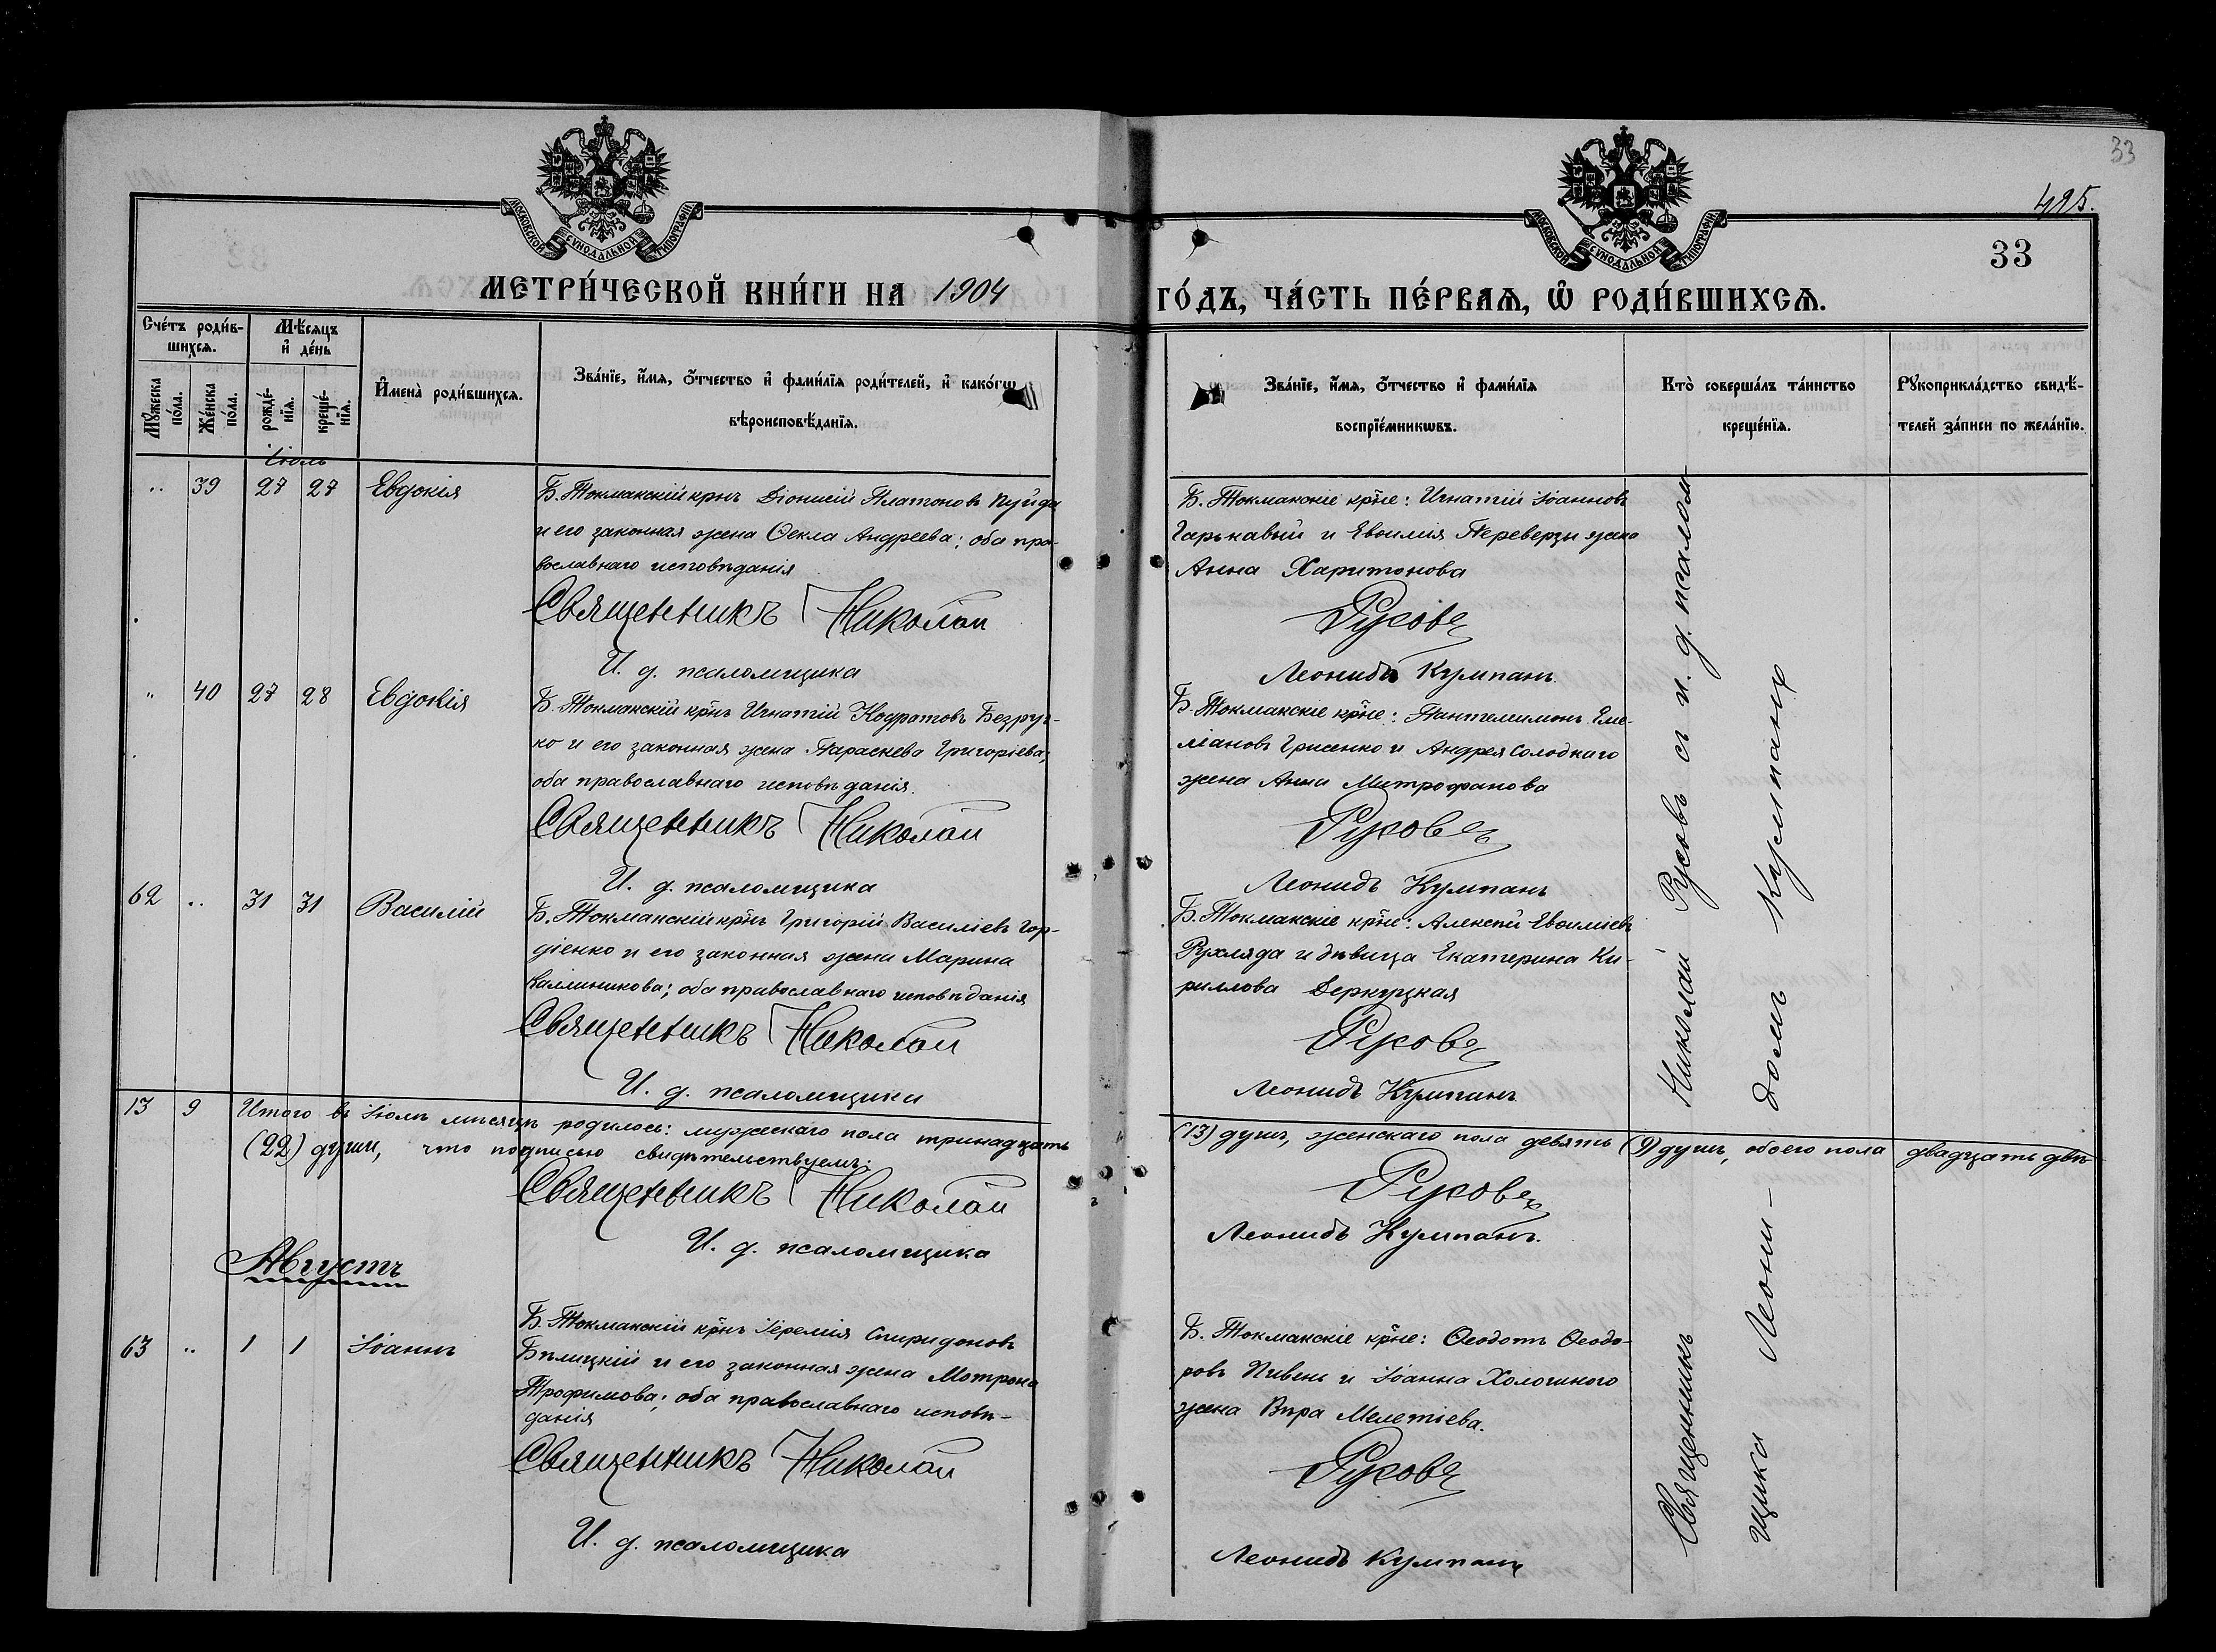 33
495.
33
МОСКОВСКОЙ СѴНОДАЛЬНОЙ ТИПОГРАФІИ
МОСКОВСКОЙ СѴНОДАЛЬНОЙ ТИПОГРАФІИ
МЕТРИ́ЧЕСКОЙ КНИ́ГИ НА 1904 ГО́ДЪ, ЧА́СТЬ ПЕ́РВАѦ, Ѿ РОДИ́ВШИХСѦ.
Сче́тъ роди́в-
шихсѧ.
Мꙋ́жеска по́ла.
Же́нска по́ла.
Мѣ́сѧцъ
и҆ де́нь
рожде́-
нїѧ.
креще́-
нїѧ.
И҆мена̀ роди́вшихсѧ.
Зва́нїе, и҆́мѧ, ѻ҆́тчество и҆ фами́лїѧ роди́телей, и҆ како́гѡ
вѣроисповѣ́данїѧ.
Зва́нїе, и҆́мѧ, ѻ҆́тчество и҆ фами́лїѧ
воспрїе́мникѡвъ.
Кто̀ соверша́лъ та́инство
креще́нїѧ.
Рꙋкоприкла́дство свидѣ́-
телей за́писи по жела́нїю.
Іюль
.. 39 27 27 Евдокія
Б. Токмакскій крнъ Діонисій Платоновъ Пуйда
и его законная жена Ѳекла Андреева; оба пра-
вославнаго исповѣданія
Священникъ Николай
И. д. псаломщика
Б. Токмакскіе крне: Игнатій Іоанновъ
Гарькавый и Евѳимія Переверзы жена
Анна Харитонова
Русовъ
Леонидъ Кумпанъ.
.. 40 27 28 Евдокія
Б. Токмакскій крнъ Игнатій Кодратовъ Безруч-
ко и его законная жена Параскева Григоріева;
оба православнаго исповѣданія.
Священникъ Николай
И. д. псаломщика
Б. Токмакскіе крне: Пантелимонъ Еме-
ліановъ Грисенко и Андрея Солодкаго
жена Анна Митрофанова
Русовъ
Леонидъ Кумпанъ
62 .. 31 31 Василій
Б. Токмакскій крнъ Григорій Василіевъ Гор-
діенко и его законная жена Марина
Каллиникова; оба православнаго исповѣданія
Священникъ Николай
И. д. псаломщика
Б. Токмакскіе крне: Алексѣй Евѳиміевъ
Рухляда и дѣвица Екатерина Ки-
риллова Деркуцкая
Русовъ
Леонидъ Кумпанъ
13 9 Итого въ Іюлѣ мѣсяцѣ родилось: мужескаго пола тринадцать (13) душъ, женскаго пола девять (9) душъ, обоего пола двадцать двѣ
(22) души, что подписью свидѣтельствуемъ:
Священникъ Николай Русовъ
И. д. псаломщика Леонидъ Кумпанъ.
Августъ
63 .. 1 1 Іоаннъ
Б. Токмакскій крнъ Іеремія Спиридоновъ
Бѣлицкій и его законная жена Мотрона
Трофимова; оба православнаго исповѣ-
данія
Священникъ Николай
И. д. псаломщика
Б. Токмакскіе крне: Ѳеодотъ Ѳеодо-
ровъ Пивень и Іоанна Холошного
жена Вѣра Мелетіева.
Русовъ
Леонидъ Кумпанъ
Священникъ Николай Русовъ съ и. д. псалом-
щика Леони-домъ Кумпаномъ